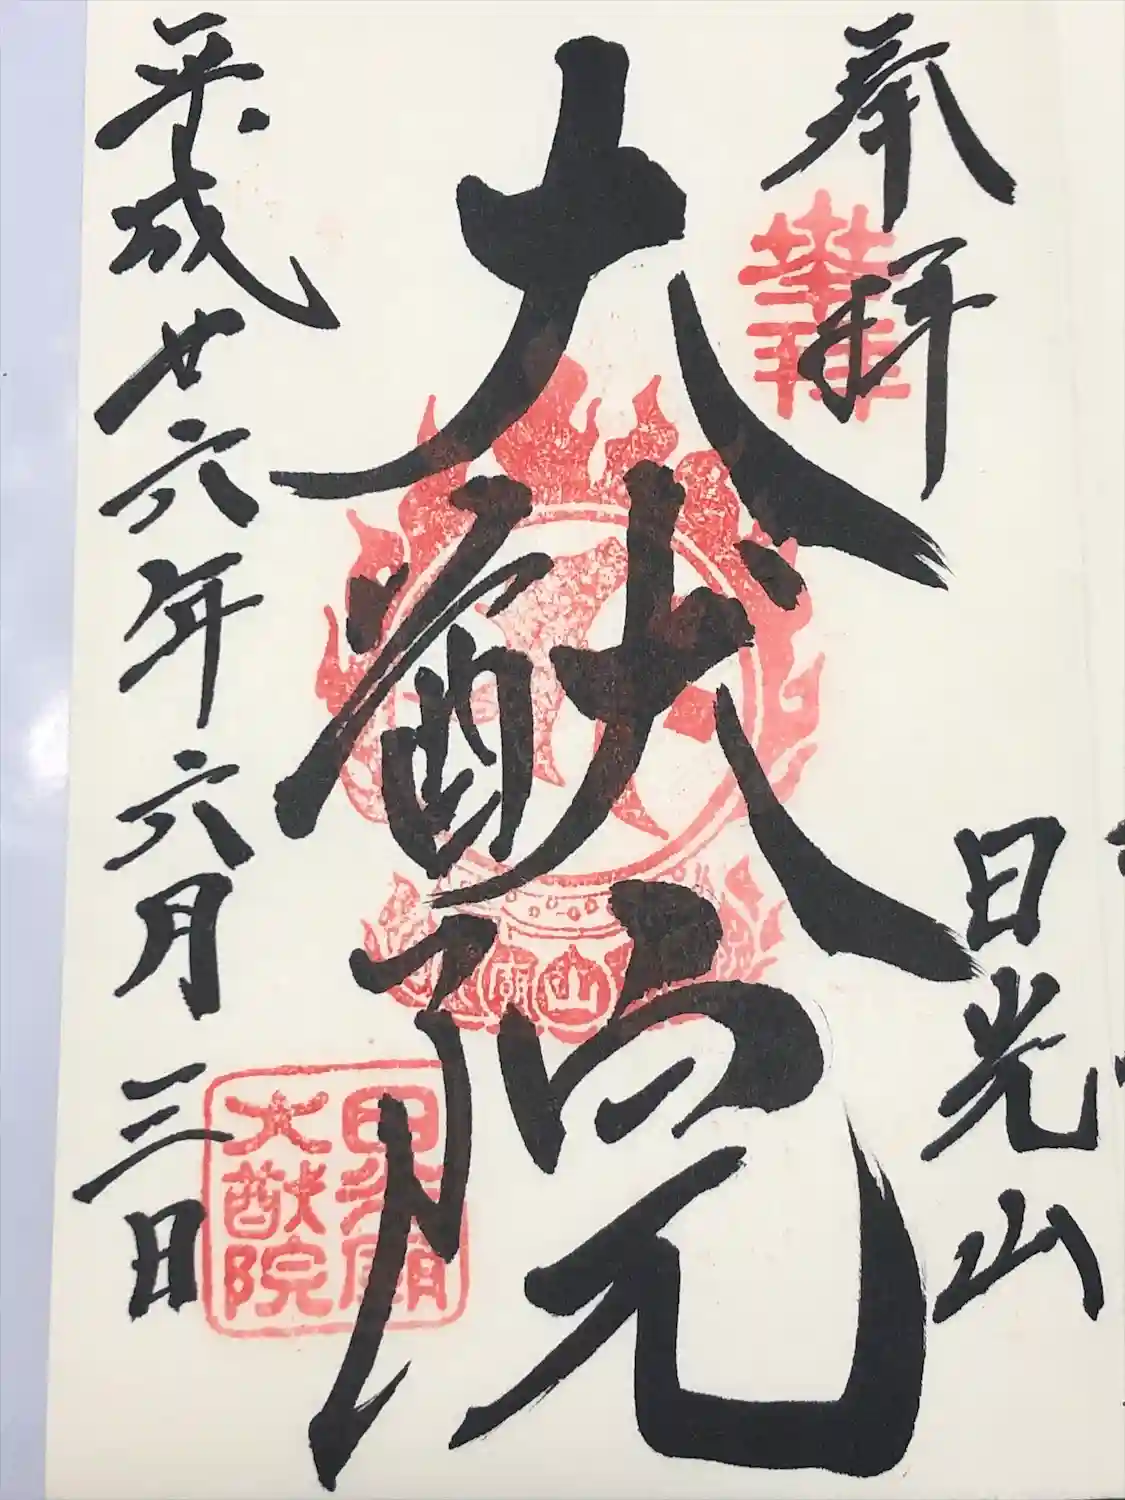 奉拝
日光山
大猷院
平成廿六年六月三日
大猷院
山
廟